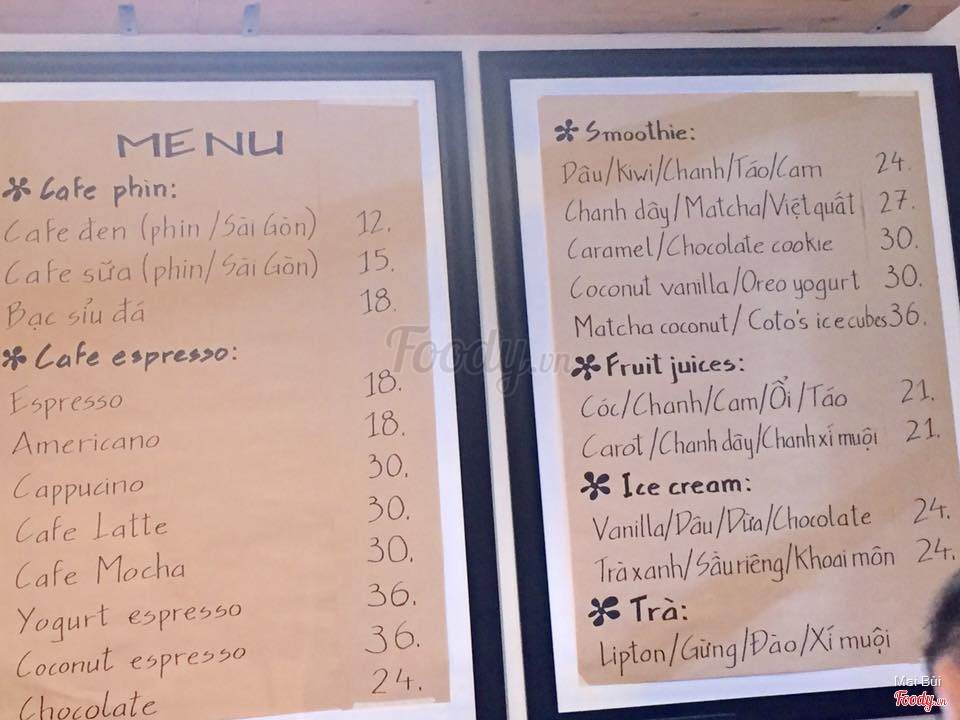 MENU
Cafe phin:
Cafe đen (phin /Sài Gòn) 12.
Cafe sữa (phin/ Sài Gòn) 15.
Bạc sỉu đá 18.
Cafe espresso:
Espresso 18.
Americano 18.
Cappucino 30.
Cafe Latte 30.
Cafe Mocha 30.
Yogurt espresso 36.
Coconut espresso 36.
Chocolate 24.
Smoothie:
Dâu/Kiwi/Chanh/Táo/Cam 24.
Chanh dây/Matcha/Việt quất 27.
Caramel/Chocolate cookie 30.
Coconut vanilla/Oreo yogurt 30.
Matcha coconut/ Coto's ice cubes 36.
Fruit juices:
Cóc/Chanh/Cam/Ổi/Táo 21.
Carot/Chanh dây/Chanh xí muội 21.
Ice cream:
Vanilla/Dâu/Dừa/Chocolate 24.
Trà xanh/Sầu riêng/Khoai môn 24.
Trà:
Lipton/Gừng/Đào/Xí muội
Foody.vn
Mst Bùi
Foody.vn